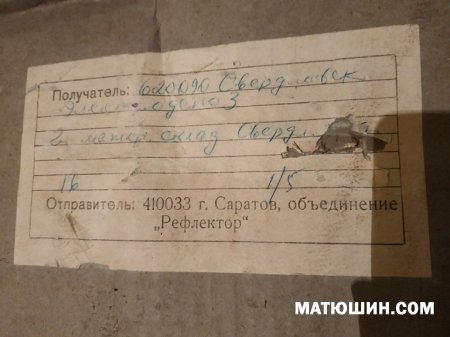 Получатель: 620090 Свердловск
Электродепо 3
2 матер склад Свердл
16 1/5
Отправитель: 410033 г. Саратов, объединение
„Рефлектор“
МАТЮШИН.COM